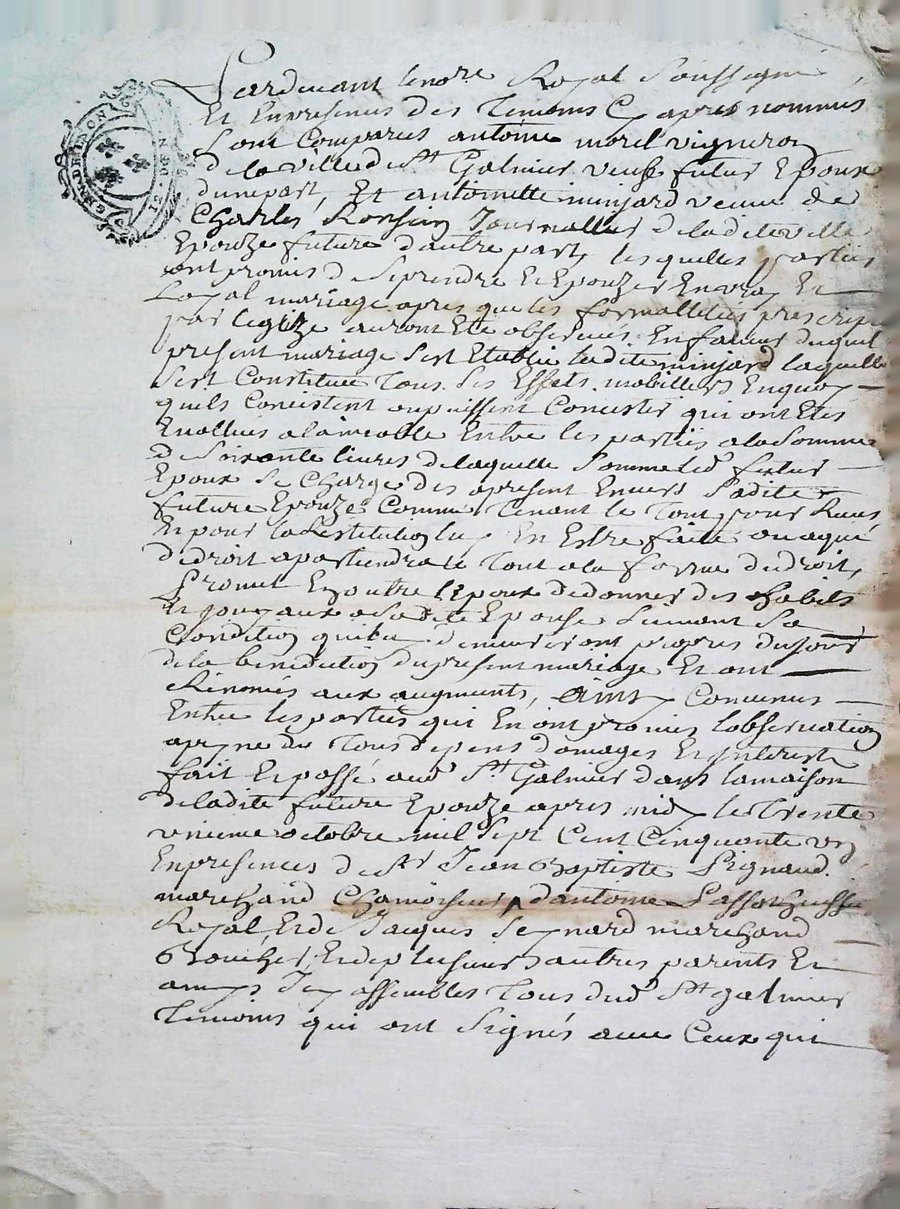 GEN. DE LION
Pardevant le no.re Royal Soussigné
Et Enpresences des Temoins Cy apres nommés
Sont Comparus antoine morel vigneron
de la ville de St Galmier veuf futur Epoux
dunepart, Et antoinette minjard veuve de
Charles Journallier de laditeville
Epouze future dautre part, les quelles parties
ont promis de Seprendre Et Epouzer En vray Et
Loyal mariage apres que les formallittés prescriptes
par leglize auront Eté observées En faveur duquel
present mariage Sest Etablie ladite minjard laquelle
Sest Constituée Tous Ses Effets mobilliers Enquoy
quels Consistent oupuissent Concister qui ont Etés
Evallues alamiable Entre les parties alaSomme
de Soixante livres delaquelle Somme led futur
Epoux Se Charge des apresent Envers Sadite
future Epouze Comme Tenant le Tout pour Reçus
Et pour la Restitution luy En Estre faite ouaqui
dedroit apartiendra le Tout ala forme dedroit,
Promet Enoutre lEpoux dedonner des habits
Et Jouyaux asadite Epouse Suivant Sa
Condition qui luy demeureront propres dujour
de la benediction dupresent mariage Et ont
Renoncés aux augments, ainsy Convenus
Entre les parties qui En ont promis lobservation
apeyne de Tous depens domages Et interests
fait Et passé aud St Galmier dans lamaison
deladite future Epouze apres midy le Trente
vnieme octobre mil Sept Cent Cinquante vn
Enpresences de Sr Jean Baptiste Pignaud
marchand Chamoiseur, dantoine huissier
Royal, Et de Jacques marchand
Et deplusieurs autres parents Et
amys Icy assembles Tous dud St galmier
Temoins qui ont Signés avec Ceux qui